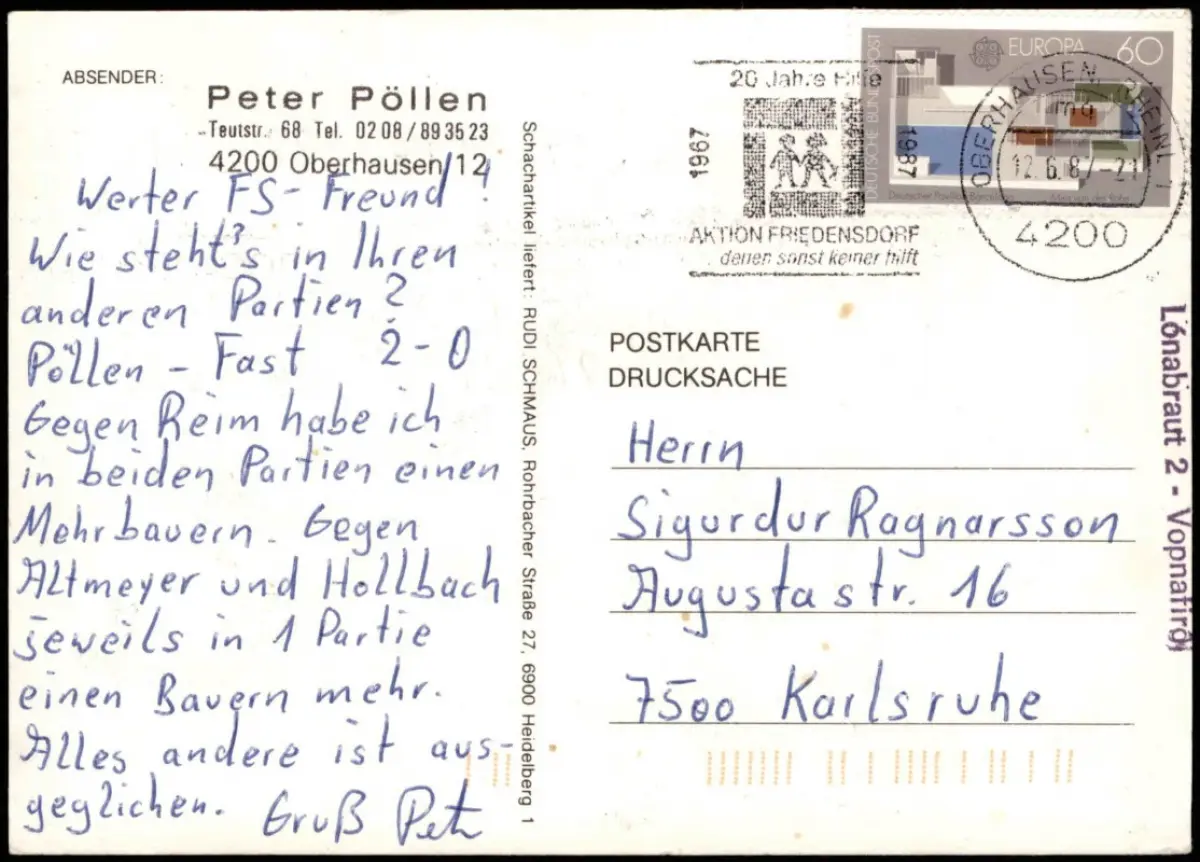 ABSENDER:
Peter Pöllen
Teutstr. 68 Tel. 0208/893523
4200 Oberhausen/12
Werter FS-Freund!
Wie steht's in Ihren
anderen Partien?
Pöllen - Fast 2-0
Gegen Reim habe ich
in beiden Partien einen
Mehrbauern. Gegen
Altmeyer und Hollbach
jeweils in 1 Partie
einen Bauern mehr.
Alles andere ist aus-
geglichen. Gruß Peter
Schachartikel liefert: RUDI SCHMAUS, Rohrbacher Straße 27, 6900 Heidelberg 1
20 Jahre Hilfe
1967
1987
AKTION FRIEDENSDORF
denen sonst keiner hilft
DEUTSCHE BUNDESPOST
EUROPA 60
OBERHAUSEN, RHEINL 1
mq
12.6.87-21
4200
POSTKARTE
DRUCKSACHE
Herrn
Sigurdur Ragnarsson
Augustastr. 16
7500 Karlsruhe
Lónabraut 2 - Vopnafirði